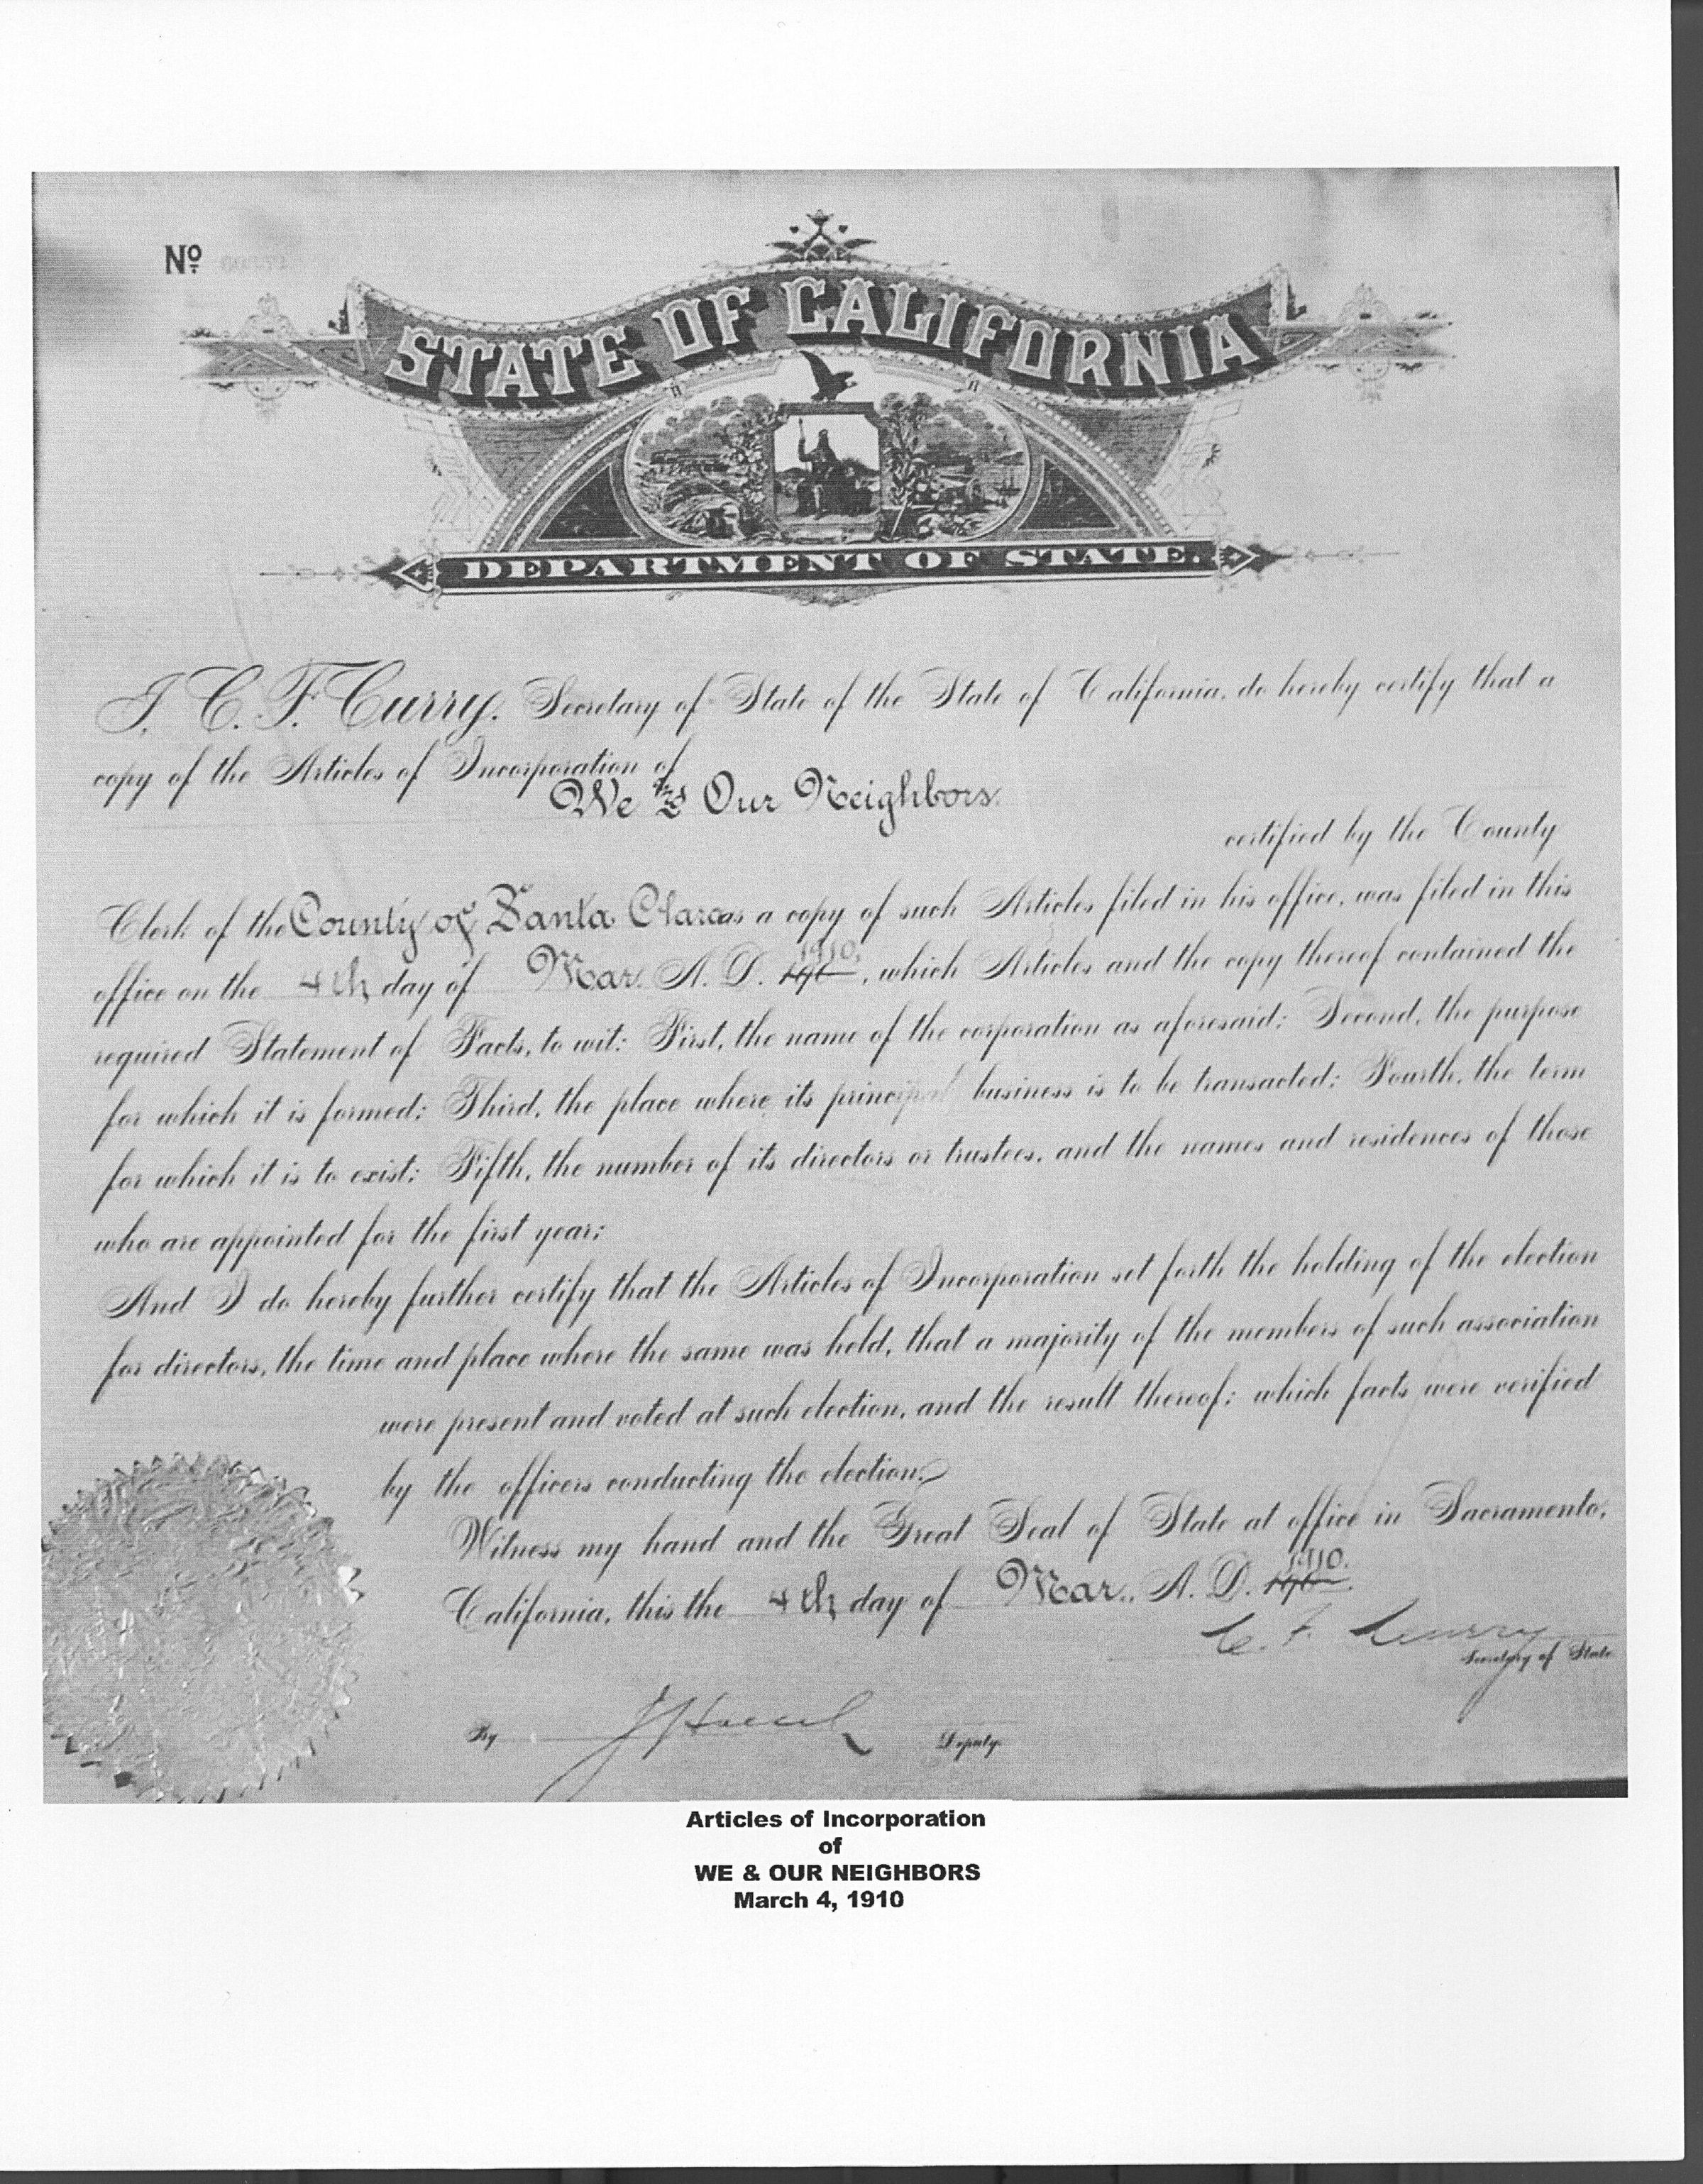 Nº
STATE OF CALIFORNIA
DEPARTMENT OF STATE.
I, C. F. Curry, Secretary of State of the State of California, do hereby certify that a
copy of the Articles of Incorporation of
We and Our Neighbors.
certified by the County
Clerk of the County of Santa Clara as a copy of such Articles filed in his office, was filed in this
office on the 4th day of Mar. A. D. 1910, which Articles and the copy thereof contained the
required Statement of Facts, to wit: First, the name of the corporation as aforesaid; Second, the purpose
for which it is formed; Third, the place where its principal business is to be transacted; Fourth, the term
for which it is to exist; Fifth, the number of its directors or trustees, and the names and residences of those
who are appointed for the first year;
And I do hereby further certify that the Articles of Incorporation set forth the holding of the election
for directors, the time and place where the same was held, that a majority of the members of such association
were present and voted at such election, and the result thereof; which facts were verified
by the officers conducting the election.
Witness my hand and the Great Seal of State at office in Sacramento,
California, this the 4th day of Mar., A. D. 1910.
C. F. Curry
Secretary of State
By J Hoesch Deputy
Articles of Incorporation
of
WE & OUR NEIGHBORS
March 4, 1910